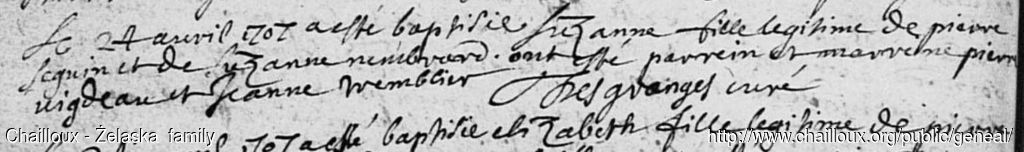 Le 24 auril 1707 a esté baptisée suzanne fille legitime de pierre
seguin et de suzanne nembrard. ont esté parrein et marreine pierre
uigdeau et Jeanne tremblier Desgranges curé
1707 a esté baptisée elizabeth fille legitime de pierre
Chailloux - Żelaska family
http://www.chailloux.org/public/geneal/